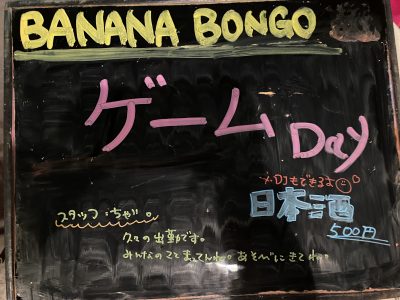 BANANA BONGO
ゲーム Day
DJもできるよ
日本酒
500円
スタッフ:ちが。
久々の出勤です。
みんなのことまってんね。あそびにきてね。